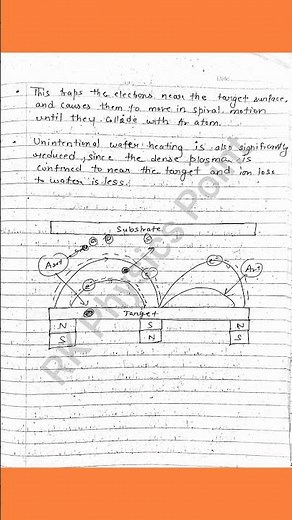 • This traps the electrons near the target surface,
and causes them to move in spiral motion
until they collide with Ar atom.
• Unintentional wafer heating is also significantly
reduced, since the dense plasma is
confined to near the target and ion loss
to wafer is less.
Substrate
Ar+
Ar+
Target
N S N
S N S
RK Physics Point